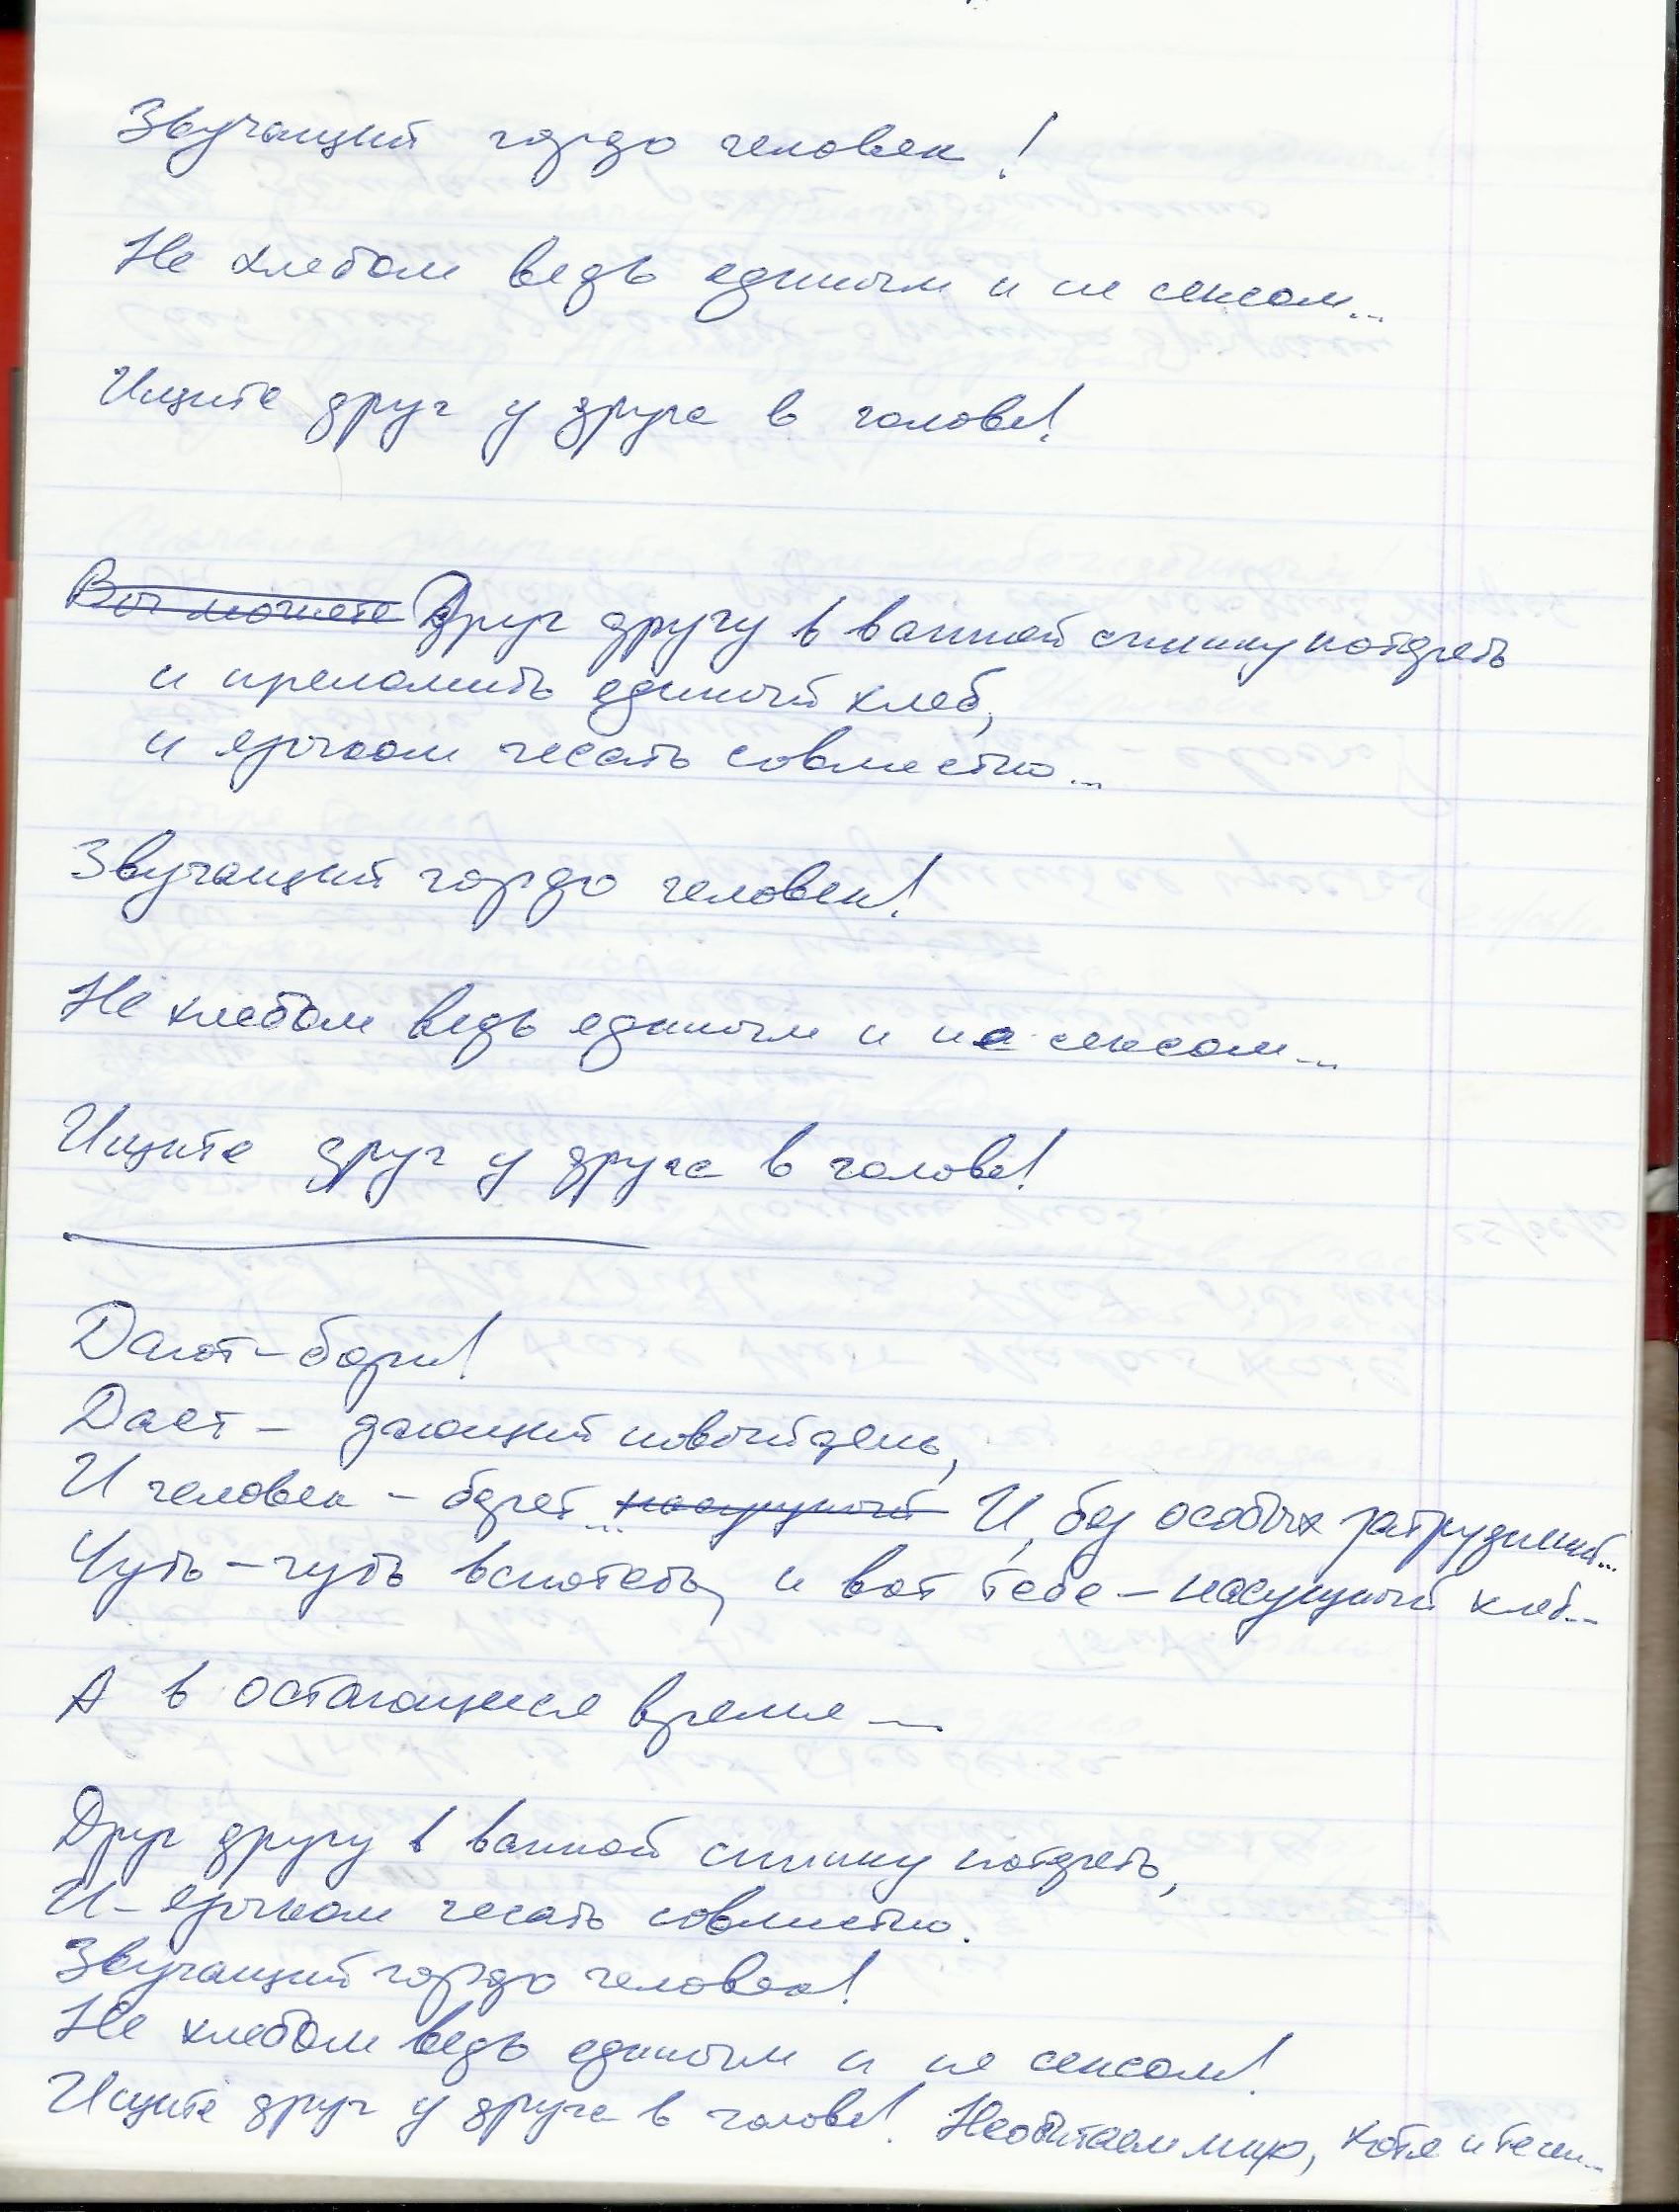 Звучащий гордо человек!
Не хлебом ведь единым и не сексом...
Ищите друг у друга в голове!
Вы можете Друг другу в ванной спинку потереть
и преломить единый хлеб,
и язычком чесать совместно...
Звучащий гордо человек!
Не хлебом ведь единым и не сексом...
Ищите друг у друга в голове!
Дают – бери!
Дает – дающий новый день,
И человек – берет... насущный И, без особых затруднений...
Чуть-чуть вспотеть, и вот тебе – насущный хлеб...
А в остающееся время ...
Друг другу в ванной спинку потереть,
И – язычком чесать совместно.
Звучащий гордо человек!
Не хлебом ведь единым и не сексом!
Ищите друг у друга в голове! Необитаем мир, хотя и тесен...